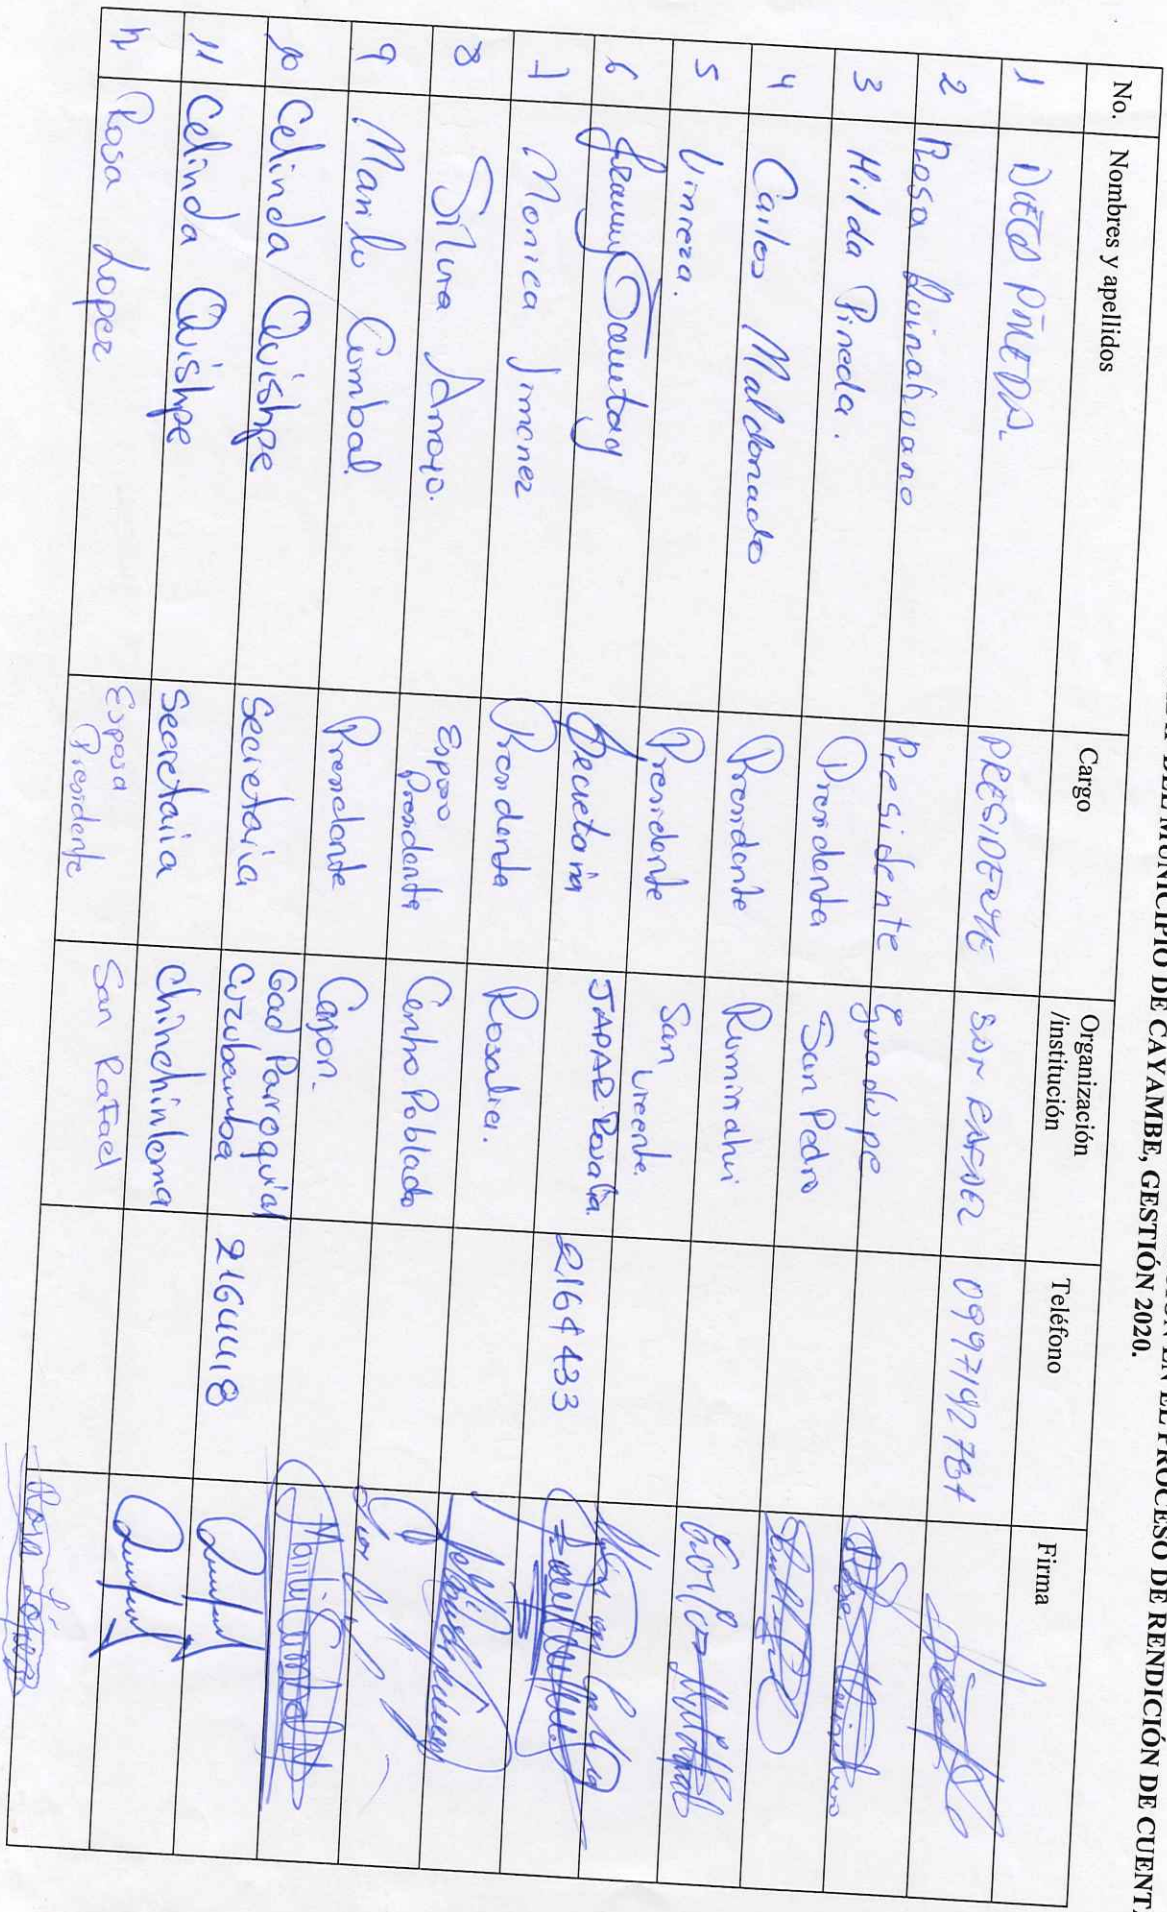 DEL MUNICIPIO DE CAYAMBE, GESTIÓN 2020.
EN EL PROCESO DE RENDICIÓN DE CUENT
No. Nombres y apellidos Cargo Organización /institución Teléfono Firma
1 DIEGO PINEDA. PRESIDENTE SAN RAFAEL 0997192784
2 Rosa Quinaluano Presidente Guadupe
3 Hilda Pineda. Presidenta San Pedro
4 Carlos Maldonado Presidente Ruminahui
5 Presidente San Vicente.
6 Secretaria JAPAR Rosalia. 2164433
7 Monica Jimenez Presidenta Rosalia.
8 Silvia Arroyo. Esposo Presidenta Centro Poblado
9 Marilu Cumbal. Presidente Cajon.
10 Celinda Quishpe Secretaria Gad Parroquial Cuzubamba 2164418
11 Celinda Quishpe Secretaria Chinchinloma
12 Rosa Lopez Esposa Presidente San Rafael
Rosa López